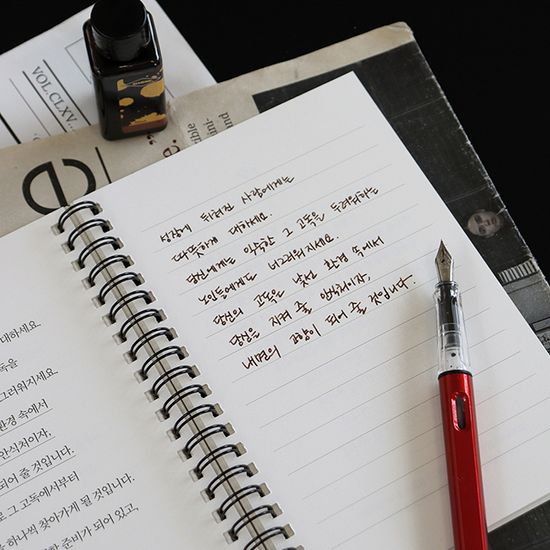 VOL.CLXV
e
성장에 뒤처진 사람에게는
따뜻하게 대하세요.
당신에게는 익숙한 그 고독을 두려워하는
노인들에게도 너그러워지세요.
당신의 고독은 낯선 환경 속에서
당신을 지켜 줄 안식처이자,
내면의 고향이 되어 줄 것입니다.
대하세요.
독을
그러워지세요.
환경 속에서
안식처이자,
되어 줄 것입니다.
로 그 고독에서부터
을 하나씩 찾아가게 될 것입니다.
준비가 되어 있고,